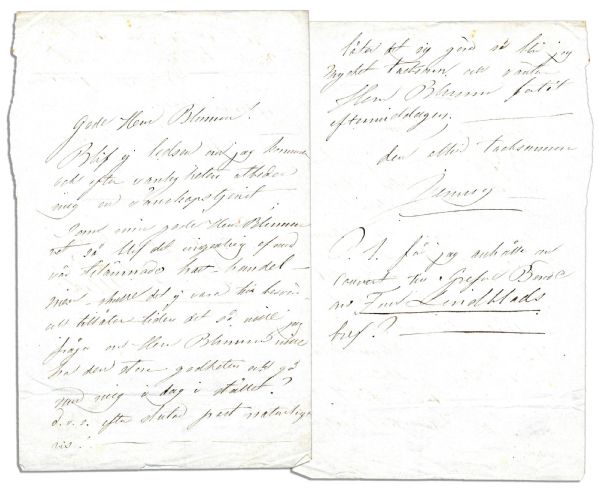 Gode Herr Blumm!
Blif ej ledsen om jag kommer
och efter vanligheten utbeder
mig en vänskapstjenst
som min gode Herr Blumm
vet så blef det ingenting af med
vår tillärnade hat-handel –
men – skulle det ej vara till besvär
att tillåter tiden det så, ville jag
fråga om Herr Blumm ville
ha den stora godheten att gå
med mig i dag i stället?
d.v.s. efter slutad post naturligt
vis! –
låter det sig göra så blir jag
mycket tacksam och väntar
Herr Blumm
eftermiddagen.
den alltid tacksamma
Jenny
P.S. få jag anhålla om
couvert till Grefve
om Fru Lindblads
bref? –